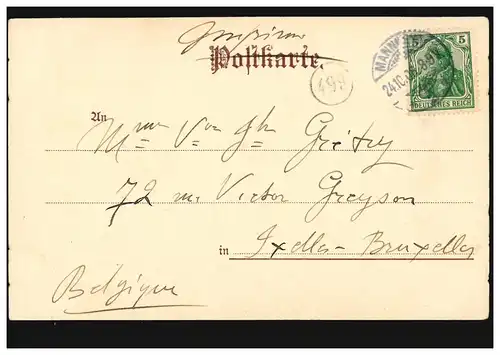 Imprimé
Postkarte.
5 5
MANNHEIM
24.10.
DEUTSCHES REICH
499
An Mme Von Jhn Grétry
72 r. Victor Greyson
in Ixelles-Bruxelles
Belgique